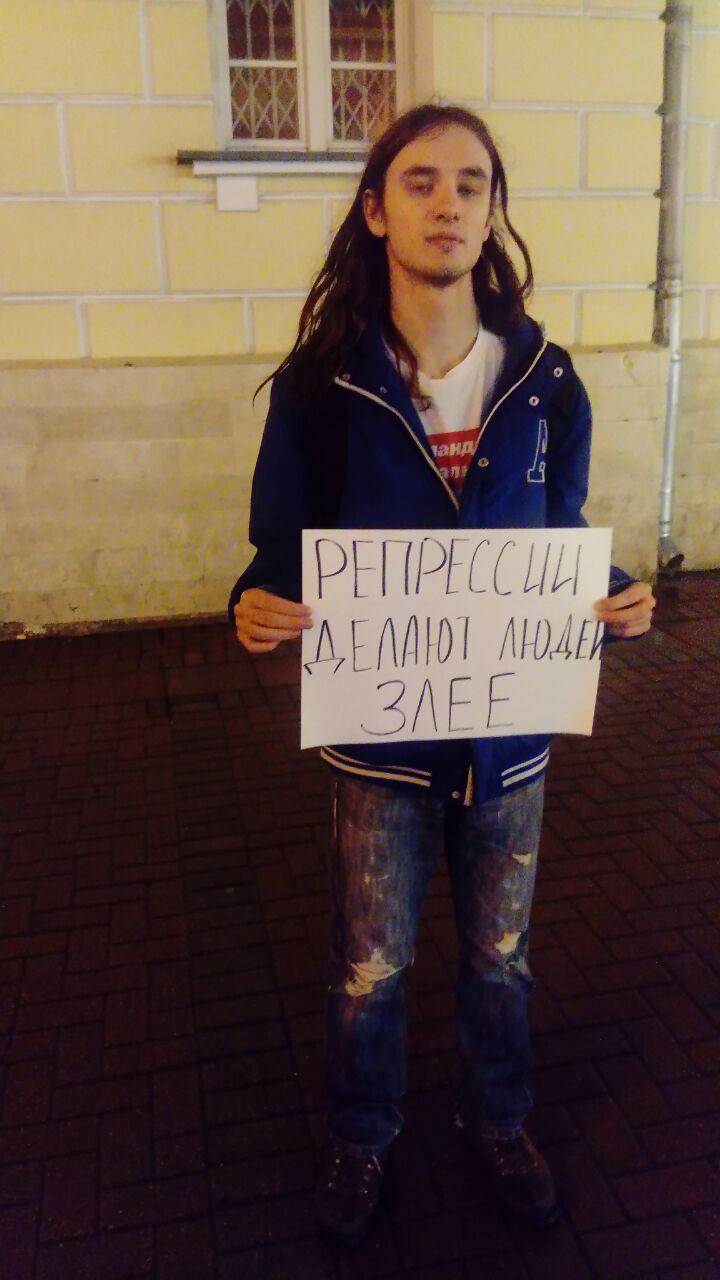 А
РЕПРЕССИИ
ДЕЛАЮТ ЛЮДЕЙ
ЗЛЕЕ